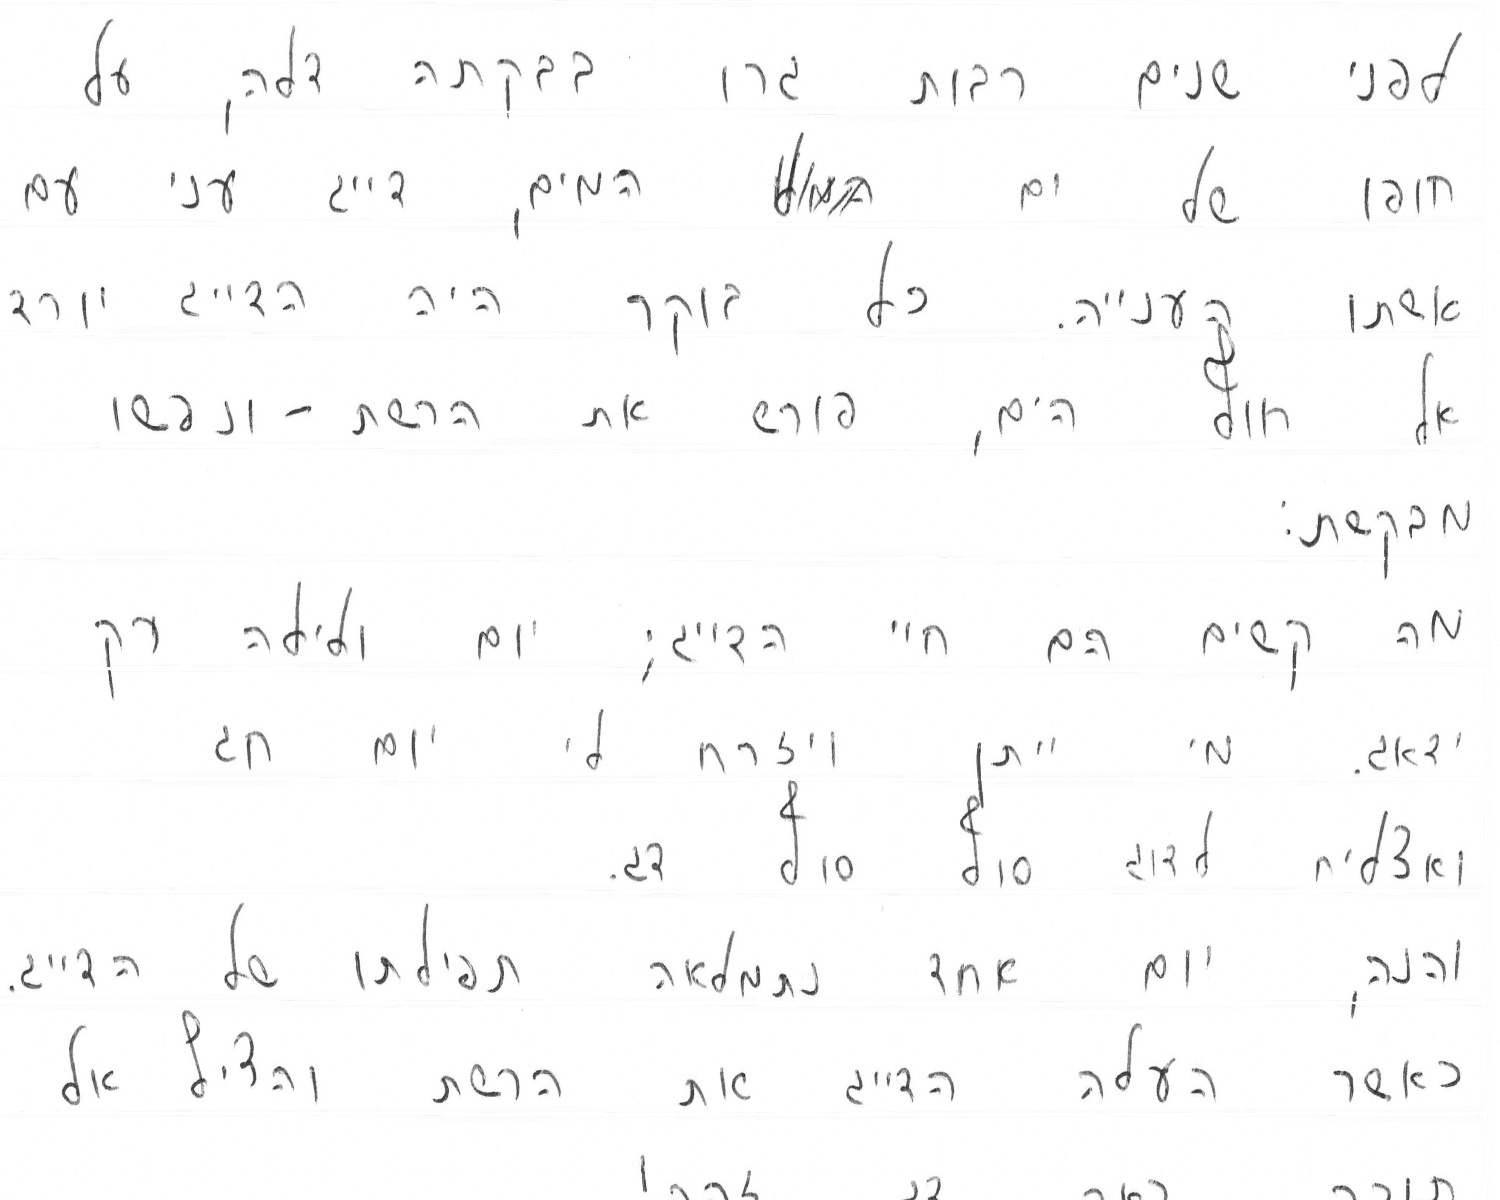 לפני שנים רבות גרו בבקתה דלה, על
חופו של ים המים, דייג עני עם
אשתו הענייה. כל בוקר היה הדייג יורד
אל חוף הים, פורש את הרשת - ונפשו
מבקשת:
מה קשים הם חיי הדייג; יום ולילה רק
ידאג. מי ייתן ויזרח לי יום חג
ואצליח לדוג סוף סוף דג.
והנה, יום אחד נתמלאה תפילתו של הדייג.
כאשר העלה הדייג את הרשת והציף אל